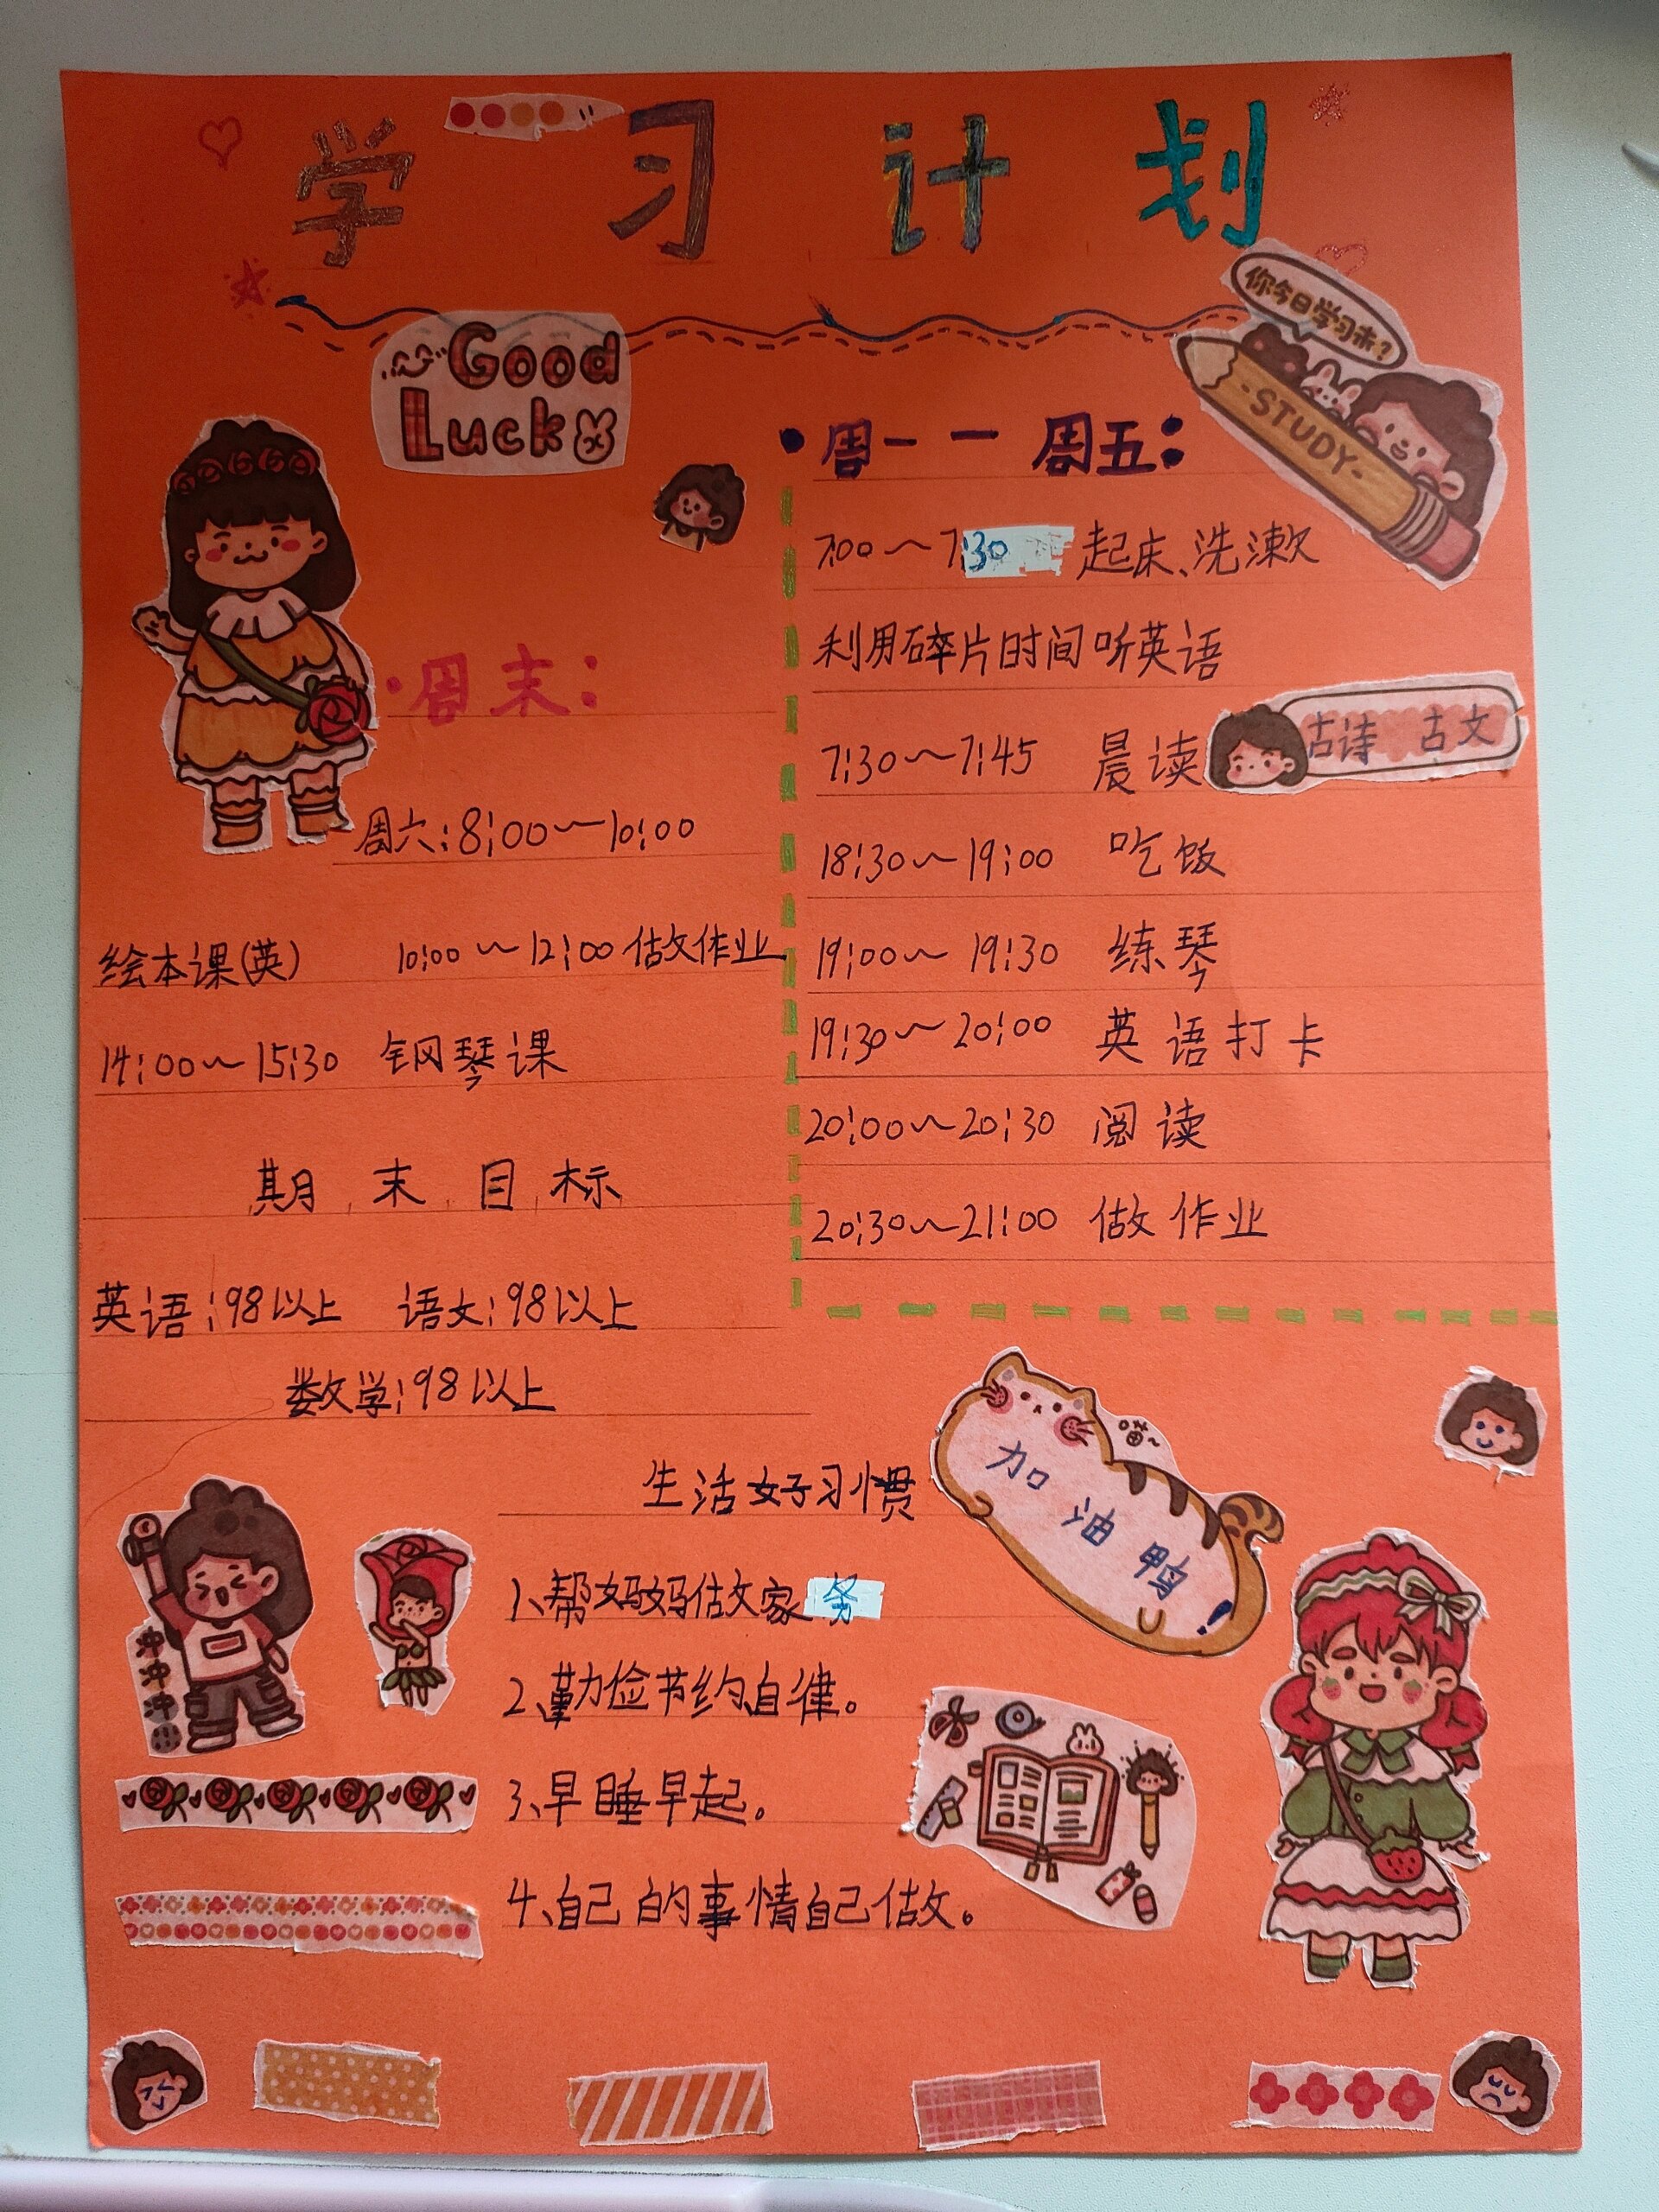 学习计划
Good
Luck
你今日学习未?
-STUDY-
周一一周五:
7:00~7:30 起床、洗漱
利用碎片时间听英语
7:30~7:45 晨读 古诗 古文
18:30~19:00 吃饭
19:00~19:30 练琴
19:30~20:00 英语打卡
20:00~20:30 阅读
20:30~21:00 做作业
周末:
周六:8:00~10:00
绘本课(英) 10:00~12:00做作业
14:00~15:30 钢琴课
期末目标
英语:98以上 语文:98以上
数学:98以上
喵~
加油鸭!
生活好习惯
1、帮妈妈做家务
2、勤俭节约、自律。
3、早睡早起。
4、自己的事情自己做。
冲
冲
冲